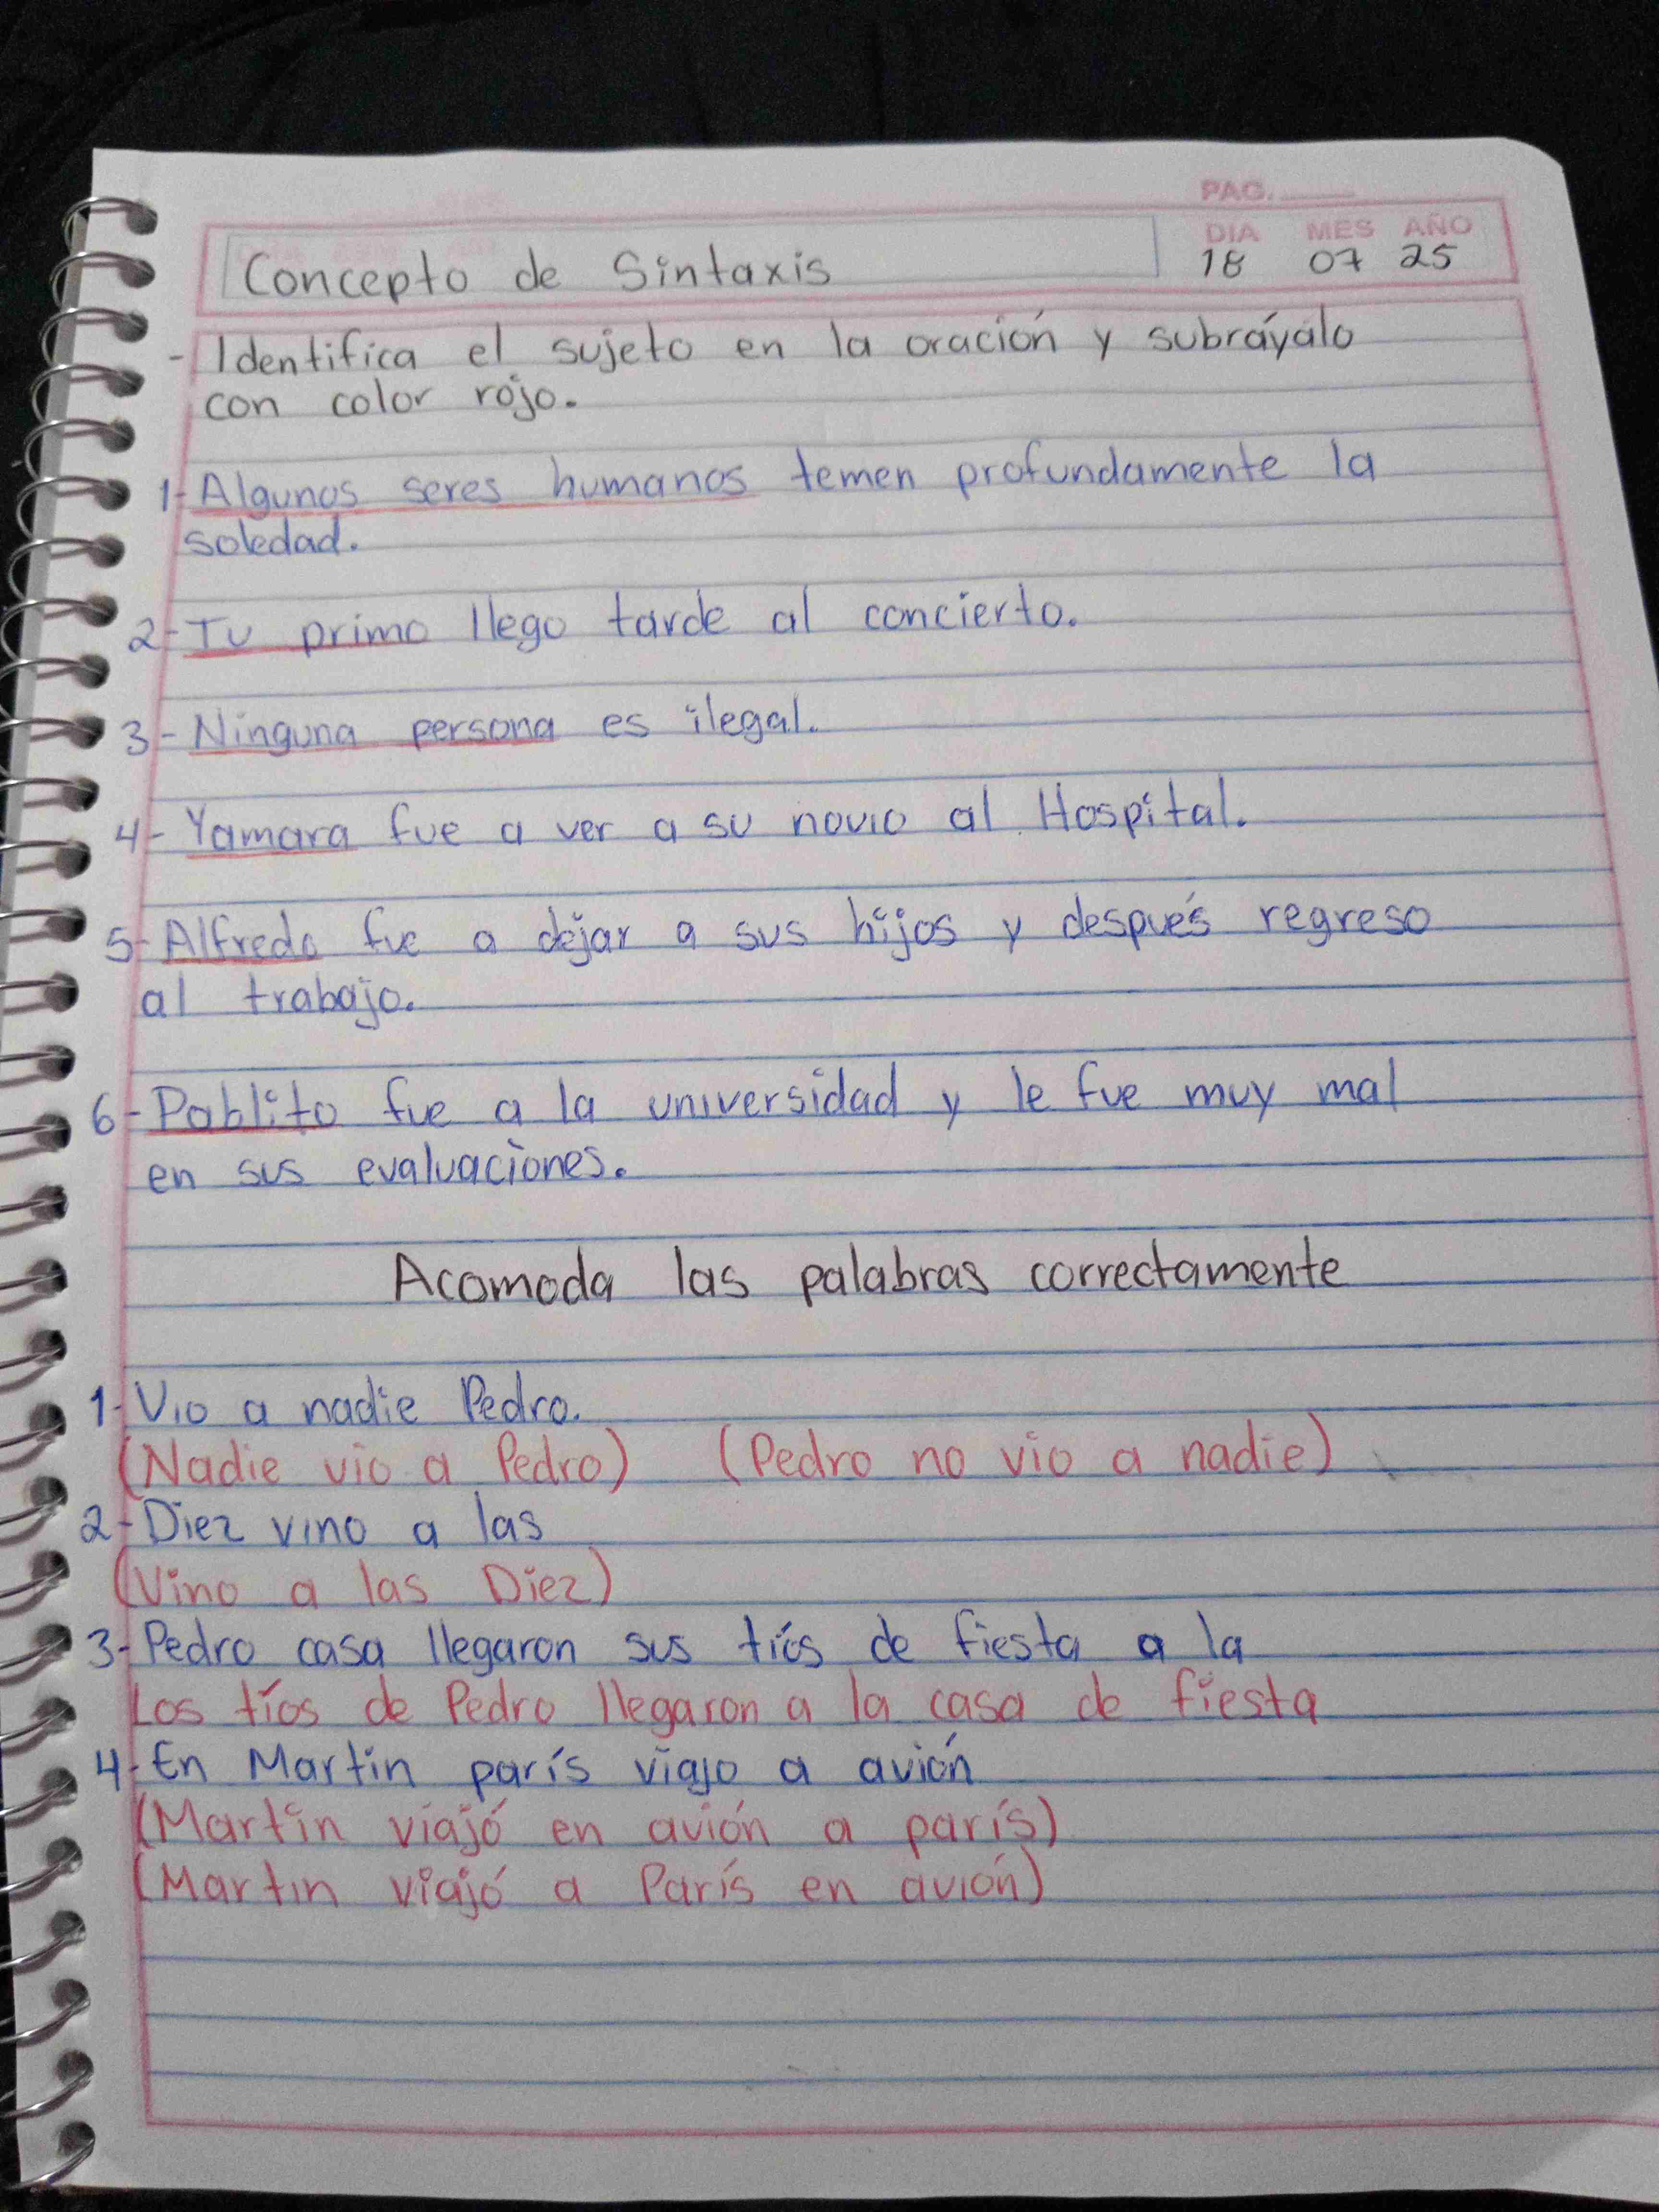 PAG.
DIA MES AÑO
Concepto de Sintaxis 18 07 25
- Identifica el sujeto en la oración y subráyalo
con color rojo.
1- Algunos seres humanos temen profundamente la
soledad.
2- Tu primo llego tarde al concierto.
3- Ninguna persona es ilegal.
4- Yamara fue a ver a su novio al Hospital.
5- Alfredo fue a dejar a sus hijos y después regreso
al trabajo.
6- Pablito fue a la universidad y le fue muy mal
en sus evaluaciones.
Acomoda las palabras correctamente
1- Vio a nadie Pedro.
(Nadie vio a Pedro) (Pedro no vio a nadie)
2- Diez vino a las
(Vino a las Diez)
3- Pedro casa llegaron sus tíos de fiesta a la
Los tíos de Pedro llegaron a la casa de fiesta
4- En Martin parís viajo a avión
(Martin viajó en avión a parís)
(Martin viajó a París en avión)